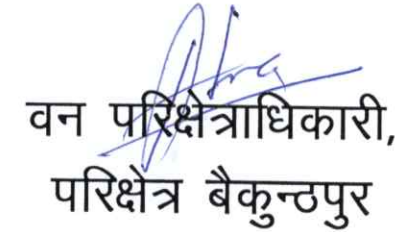 वन परिक्षेत्राधिकारी,
परिक्षेत्र बैकुन्ठपुर